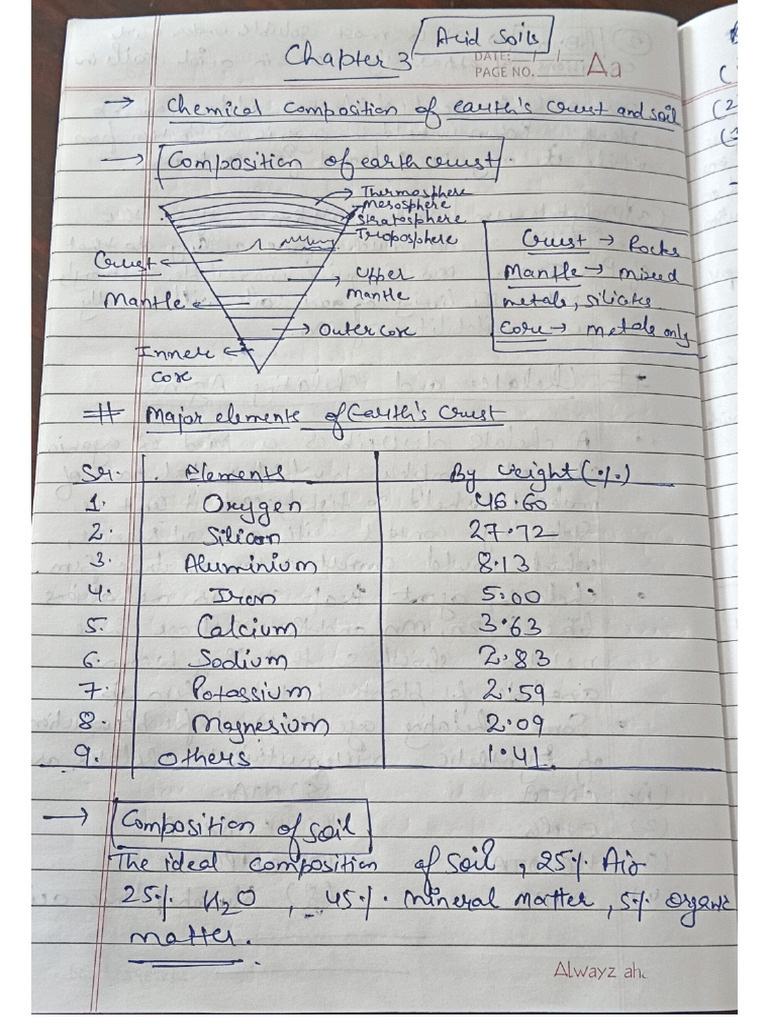 Acid Soils
Chapter 3
DATE: __/__/__
PAGE NO.
Aa
→ Chemical composition of earth's crust and soil
→ Composition of earth crust.
Thermosphere
Mesosphere
Stratosphere
Troposphere
Crust
Mantle
Upper
mantle
Outer core
Inner
core
Crust → Rocks
Mantle → mixed
metals, silicate
Core → metals only
# Major elements of Earth's Crust
Sr. Elements By weight (%)
1. Oxygen 46.60
2. Silicon 27.72
3. Aluminium 8.13
4. Iron 5.00
5. Calcium 3.63
6. Sodium 2.83
7. Potassium 2.59
8. Magnesium 2.09
9. Others 1.41
→ Composition of soil
The ideal composition of soil, 25% Air
25% H2O, 45% mineral matter, 5% organic
matter.
Alwayz ah
(2